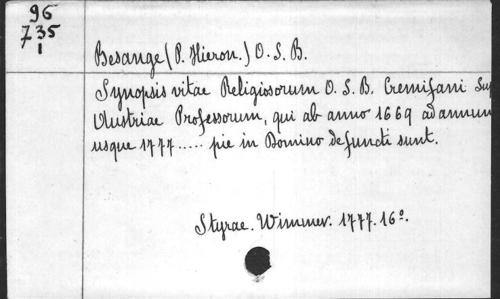 96
735
1
Besange (P. Hieron.) O. S. B.
Synopsis vitae Religiosorum O. S. B. Cremifani Sup
Austriae Professorum, qui ab anno 1669 ad annum
usque 1777 ..... pie in Domino defuncti sunt.
Styrae. Wimmer. 1777. 16º.